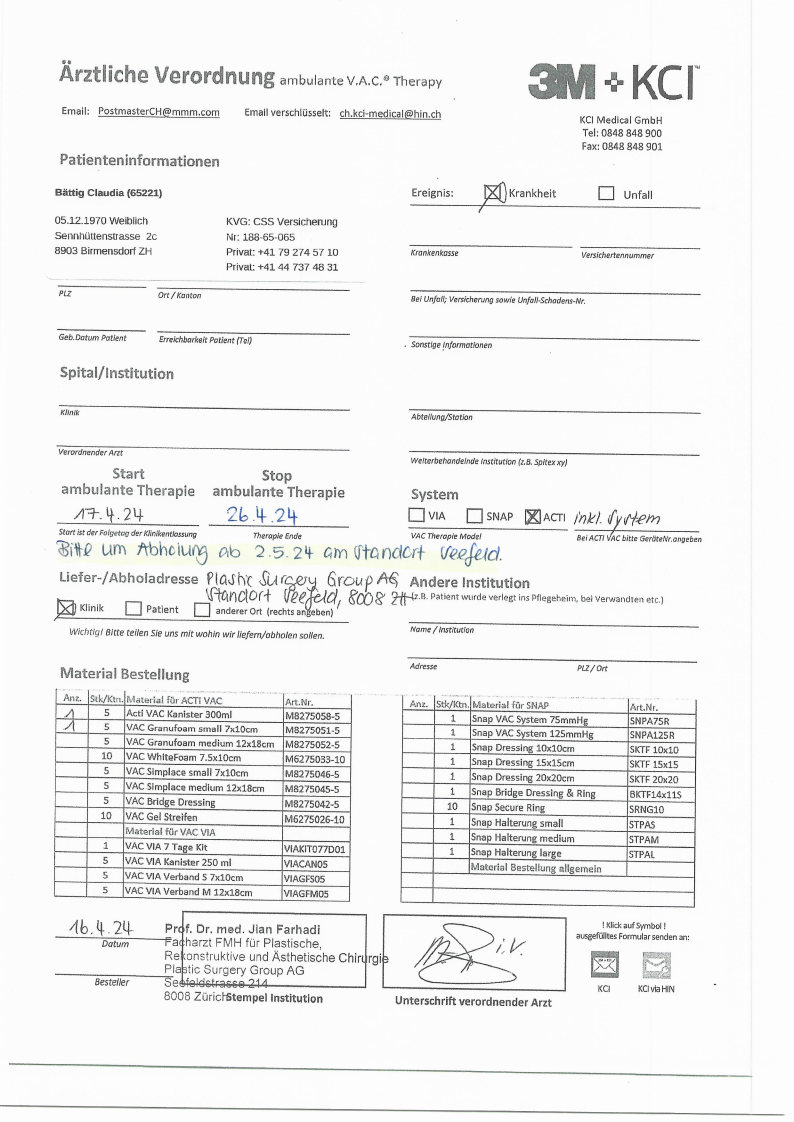 Ärztliche Verordnung ambulante V.A.C.® Therapy
3M + KCI™
Email: PostmasterCH@mmm.com Email verschlüsselt: ch.kci-medical@hin.ch
KCI Medical GmbH
Tel: 0848 848 900
Fax: 0848 848 901
Patienteninformationen
Bättig Claudia (65221)
05.12.1970 Weiblich
Sennhüttenstrasse 2c
8903 Birmensdorf ZH
KVG: CSS Versicherung
Nr: 188-65-065
Privat: +41 79 274 57 10
Privat: +41 44 737 48 31
PLZ Ort / Kanton
Geb.Datum Patient Erreichbarkeit Patient (Tel)
Ereignis: Krankheit Unfall
Krankenkasse Versichertennummer
Bei Unfall; Versicherung sowie Unfall-Schadens-Nr.
Sonstige Informationen
Spital/Institution
Klinik
Abteilung/Station
Verordnender Arzt
Weiterbehandelnde Institution (z.B. Spitex xy)
Start ambulante Therapie
Stop ambulante Therapie
17.4.24
26.4.24
Start ist der Folgetag der Klinikentlassung Therapie Ende
System
VIA SNAP ACTI inkl. System
VAC Therapie Model Bei ACTI VAC bitte GeräteNr.angeben
Bitte um Abholung ab 2.5.24 am Standort Seefeld.
Liefer-/Abholadresse Plastic Surgery Group AG
Standort Seefeld, 8008 ZH
Klinik Patient anderer Ort (rechts angeben)
Wichtig! Bitte teilen Sie uns mit wohin wir liefern/abholen sollen.
Andere Institution
(z.B. Patient wurde verlegt ins Pflegeheim, bei Verwandten etc.)
Name / Institution
Adresse PLZ / Ort
Material Bestellung
Anz. Stk/Ktn. Material für ACTI VAC Art.Nr.
1 5 Acti VAC Kanister 300ml M8275058-5
1 5 VAC Granufoam small 7x10cm M8275051-5
5 VAC Granufoam medium 12x18cm M8275052-5
10 VAC WhiteFoam 7.5x10cm M6275033-10
5 VAC Simplace small 7x10cm M8275046-5
5 VAC Simplace medium 12x18cm M8275045-5
5 VAC Bridge Dressing M8275042-5
10 VAC Gel Streifen M6275026-10
Material für VAC VIA
1 VAC VIA 7 Tage Kit VIAKIT077D01
5 VAC VIA Kanister 250 ml VIACAN05
5 VAC VIA Verband S 7x10cm VIAGFS05
5 VAC VIA Verband M 12x18cm VIAGFM05
Anz. Stk/Ktn. Material für SNAP Art.Nr.
1 Snap VAC System 75mmHg SNPA75R
1 Snap VAC System 125mmHg SNPA125R
1 Snap Dressing 10x10cm SKTF 10x10
1 Snap Dressing 15x15cm SKTF 15x15
1 Snap Dressing 20x20cm SKTF 20x20
1 Snap Bridge Dressing & Ring BKTF14x11S
10 Snap Secure Ring SRNG10
1 Snap Halterung small STPAS
1 Snap Halterung medium STPAM
1 Snap Halterung large STPAL
Material Bestellung allgemein
16.4.24
Datum
Besteller
Prof. Dr. med. Jian Farhadi
Facharzt FMH für Plastische,
Rekonstruktive und Ästhetische Chirurgie
Plastic Surgery Group AG
Seefeldstrasse 214
8008 Zürich
Stempel Institution
i.V.
Unterschrift verordnender Arzt
! Klick auf Symbol !
ausgefülltes Formular senden an:
KCI KCI via HIN